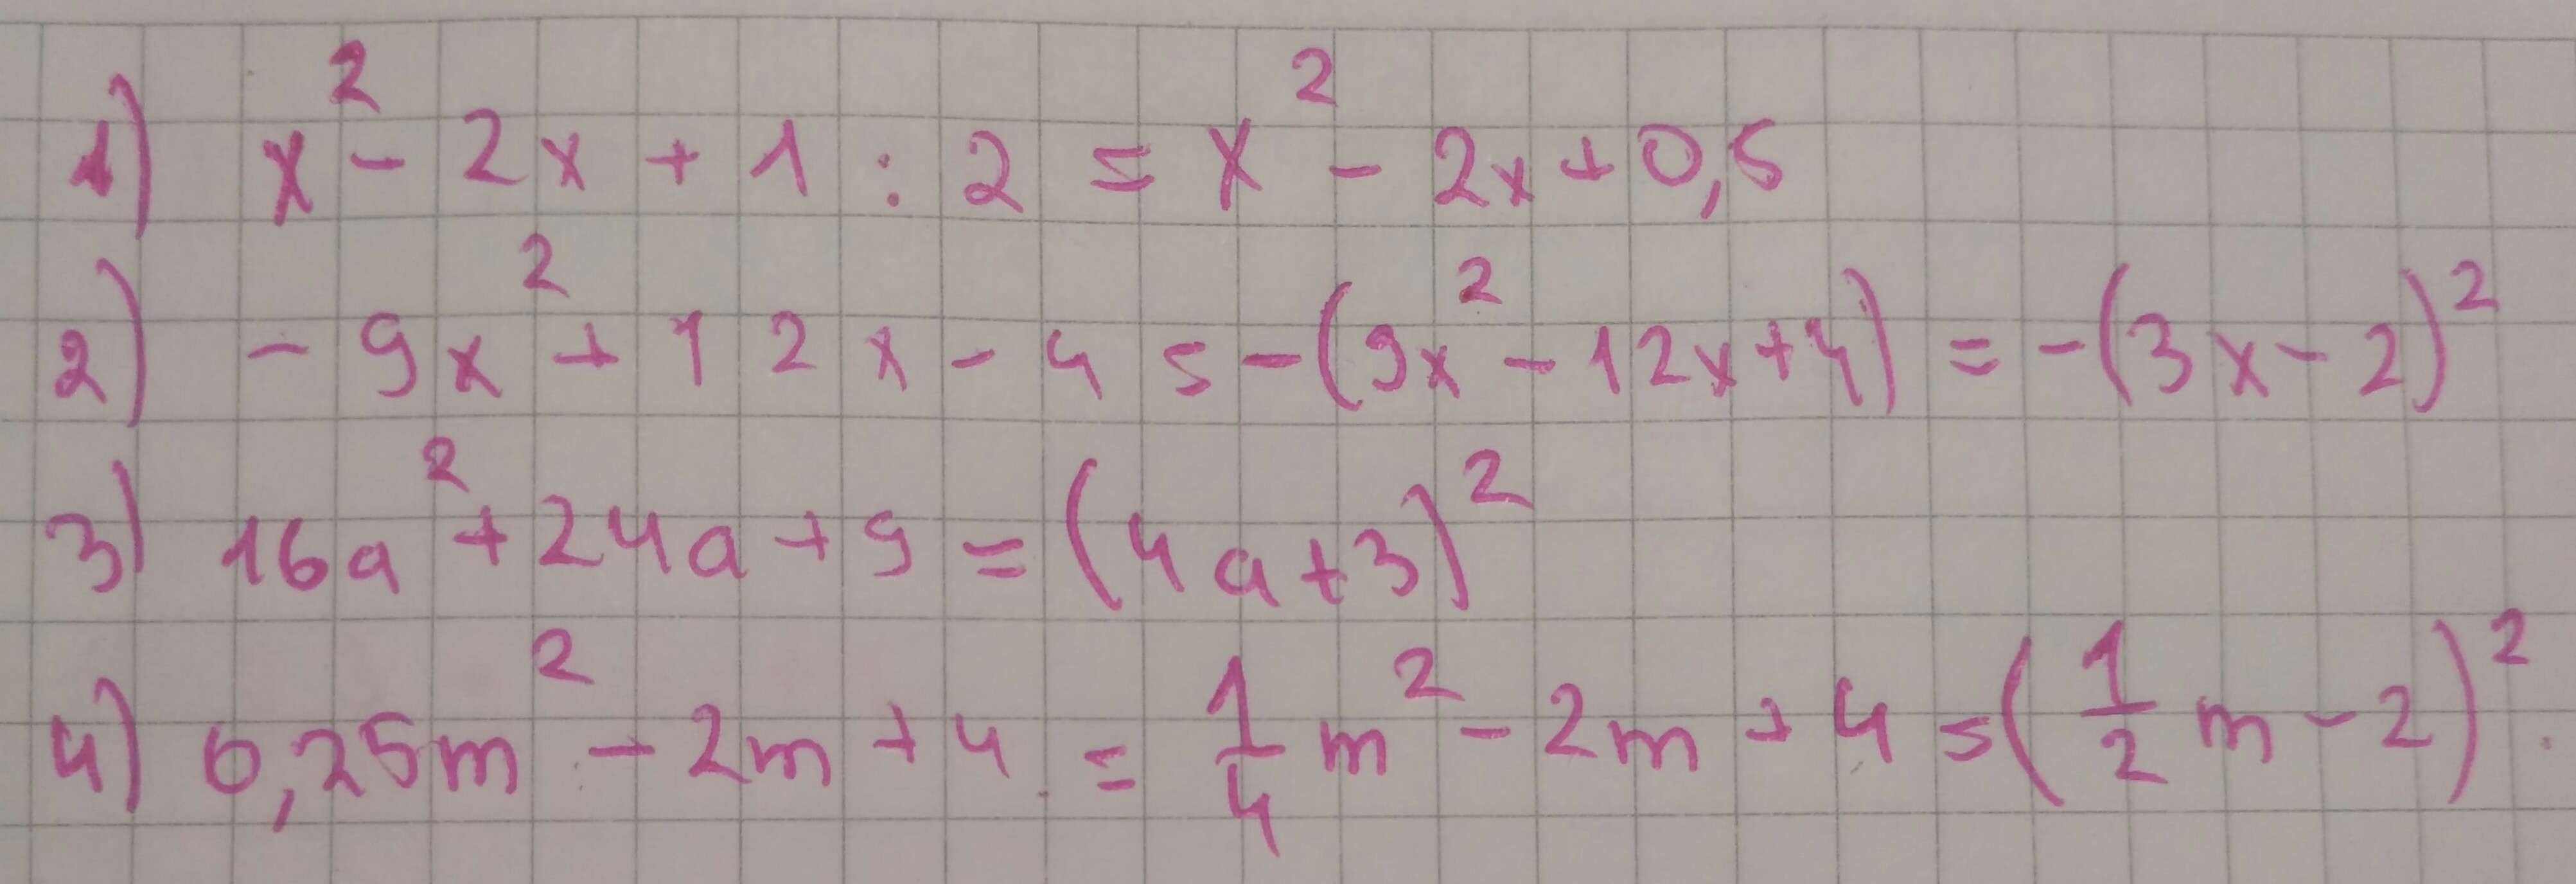 1) x² - 2x + 1 : 2 = x² - 2x + 0,5
2) - 9x² + 12x - 4 = -(9x² - 12x + 4) = -(3x - 2)²
3) 16a² + 24a + 9 = (4a + 3)²
4) 0,25m² - 2m + 4 = 1/4 m² - 2m + 4 = (1/2 m - 2)²